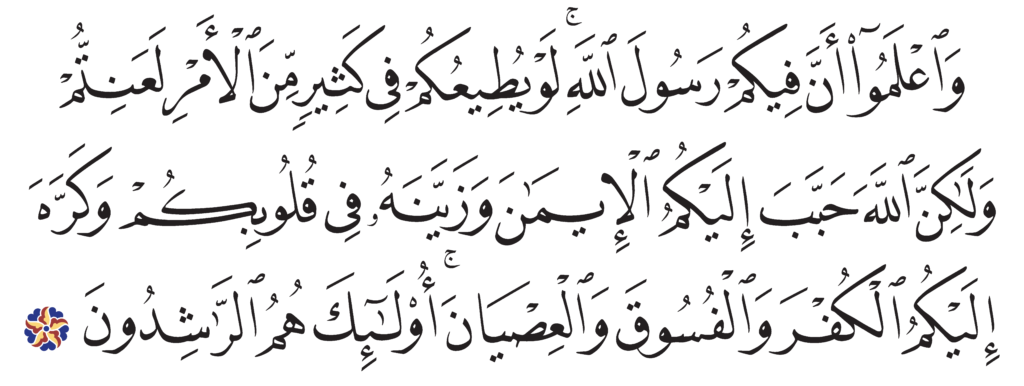 وَٱعۡلَمُوٓاْ أَنَّ فِيكُمۡ رَسُولَ ٱللَّهِۚ لَوۡ يُطِيعُكُمۡ فِي كَثِيرٖ مِّنَ ٱلۡأَمۡرِ لَعَنِتُّمۡ
وَلَٰكِنَّ ٱللَّهَ حَبَّبَ إِلَيۡكُمُ ٱلۡإِيمَٰنَ وَزَيَّنَهُۥ فِي قُلُوبِكُمۡ وَكَرَّهَ
إِلَيۡكُمُ ٱلۡكُفۡرَ وَٱلۡفُسُوقَ وَٱلۡعِصۡيَانَۚ أُوْلَٰٓئِكَ هُمُ ٱلرَّٰشِدُونَ